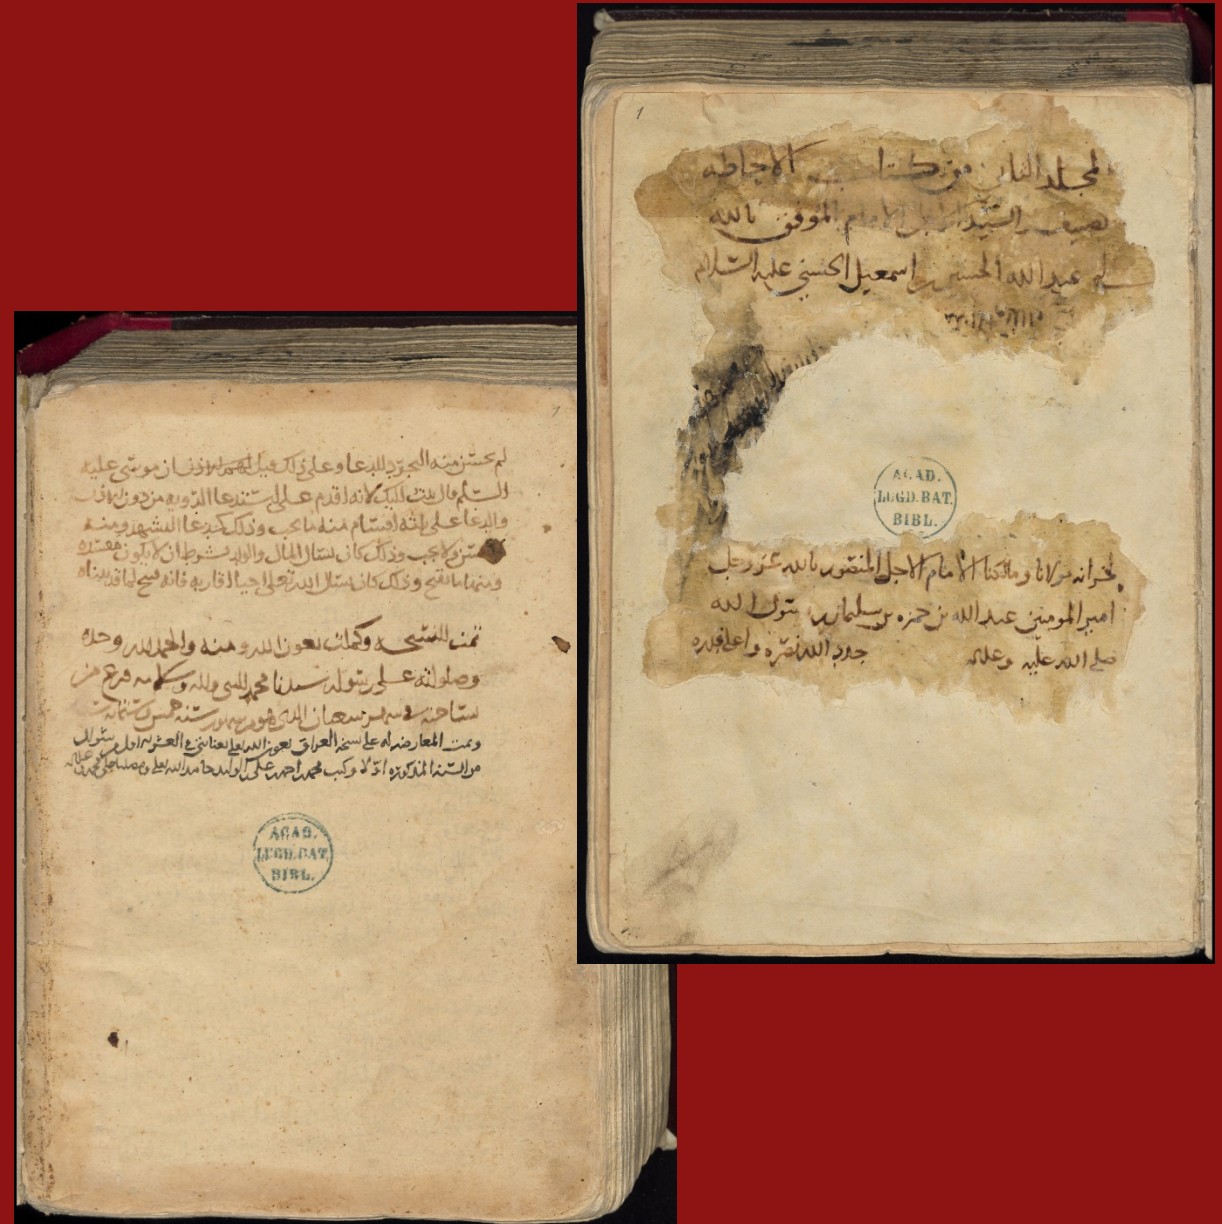 1
المجلد الثاني من كتاب الاحاطه
تصنيف السيد الاجل الامام الموفق بالله
عبد الله الحسين بن اسمعيل الحسني عليه السلام
ACAD.
LUGD. BAT.
BIBL.
لخزانه مولانا ومالكنا الامام الاجل المنصور بالله عز وجل
امير المومنين عبد الله بن حمزه بن سليمان بن رسول الله
صلى الله عليه وعليهم
لم يحسن منه التجرد للدعا وعلى ذلك قيل
السلم قال تبت اليك لانه اقدم على
من دون
والدعا على ثلثه اقسام منه ما يجب وذلك كدعا التشهد ومنه
ولا يجب وذلك كان يسال المال والولد بشرط ان لا يكون مفسده
ومنها ما يقبح وذلك كان يسال الله تعلى احيا اقاربه فانه قبيح لما قدمناه
تمت النسخه وكملت بعون الله ومنه والحمد لله وحده
وصلواته على رسوله سيدنا محمد النبي واله وسلامه فرغ من
نساخته في شهر شعبان الذي هو من شهور سنه خمس وستمايه
وتمت المعارضه له على نسخه العراق بعون الله تعلى في العشر الاول من شوال
من السنه المذكوره اولا وكتب محمد احمد علي الوليد حامدا لله تعلى
ACAD.
LUGD. BAT.
BIBL.